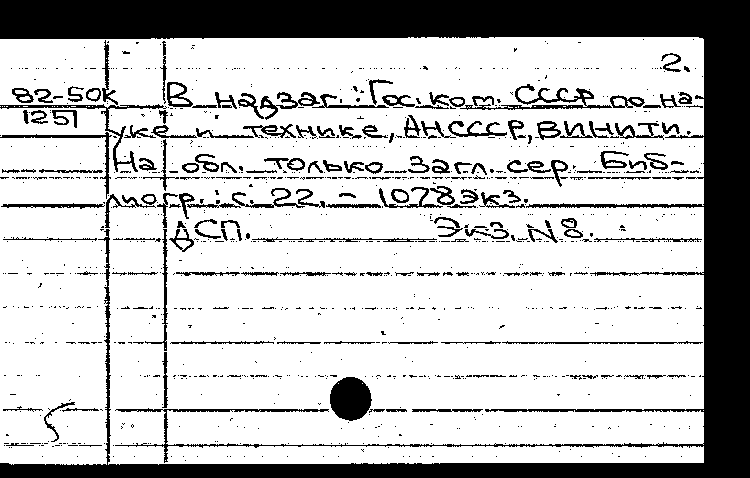 2.
82-50К В надзаг.: Гос. ком. СССР по на-
1251 уке и технике, АН СССР, ВИНИТИ.
На обл. только загл. сер. Биб-
лиогр.: с. 22. - 1078 экз.
ДСП. Экз. N 8.
5